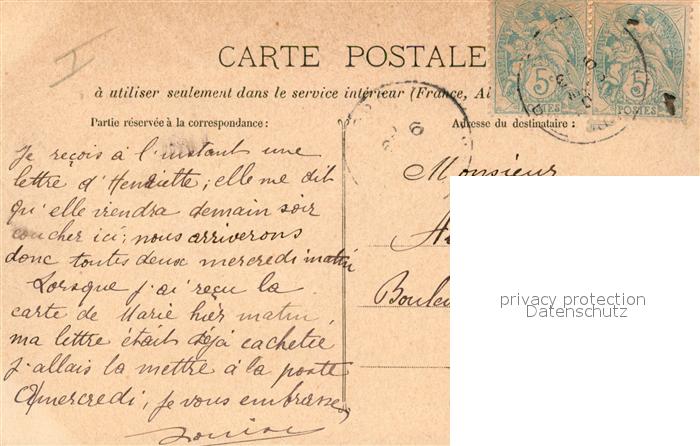 CARTE POSTALE
à utiliser seulement dans le service intérieur (France, Al
Partie réservée à la correspondance:
Adresse du destinataire:
5
5
POSTES
POSTES
6
I
Je reçois à l'instant une
lettre d'Henriette; elle me dit
qu'elle viendra demain soir
coucher ici; nous arriverons
donc toutes deux mercredi matin
Lorsque j'ai reçu la
carte de Marie hier matin,
ma lettre était déjà cachetée
j'allais la mettre à la poste
A mercredi, je vous embrasse
Louise
Monsieur
Boule
privacy protection
Datenschutz